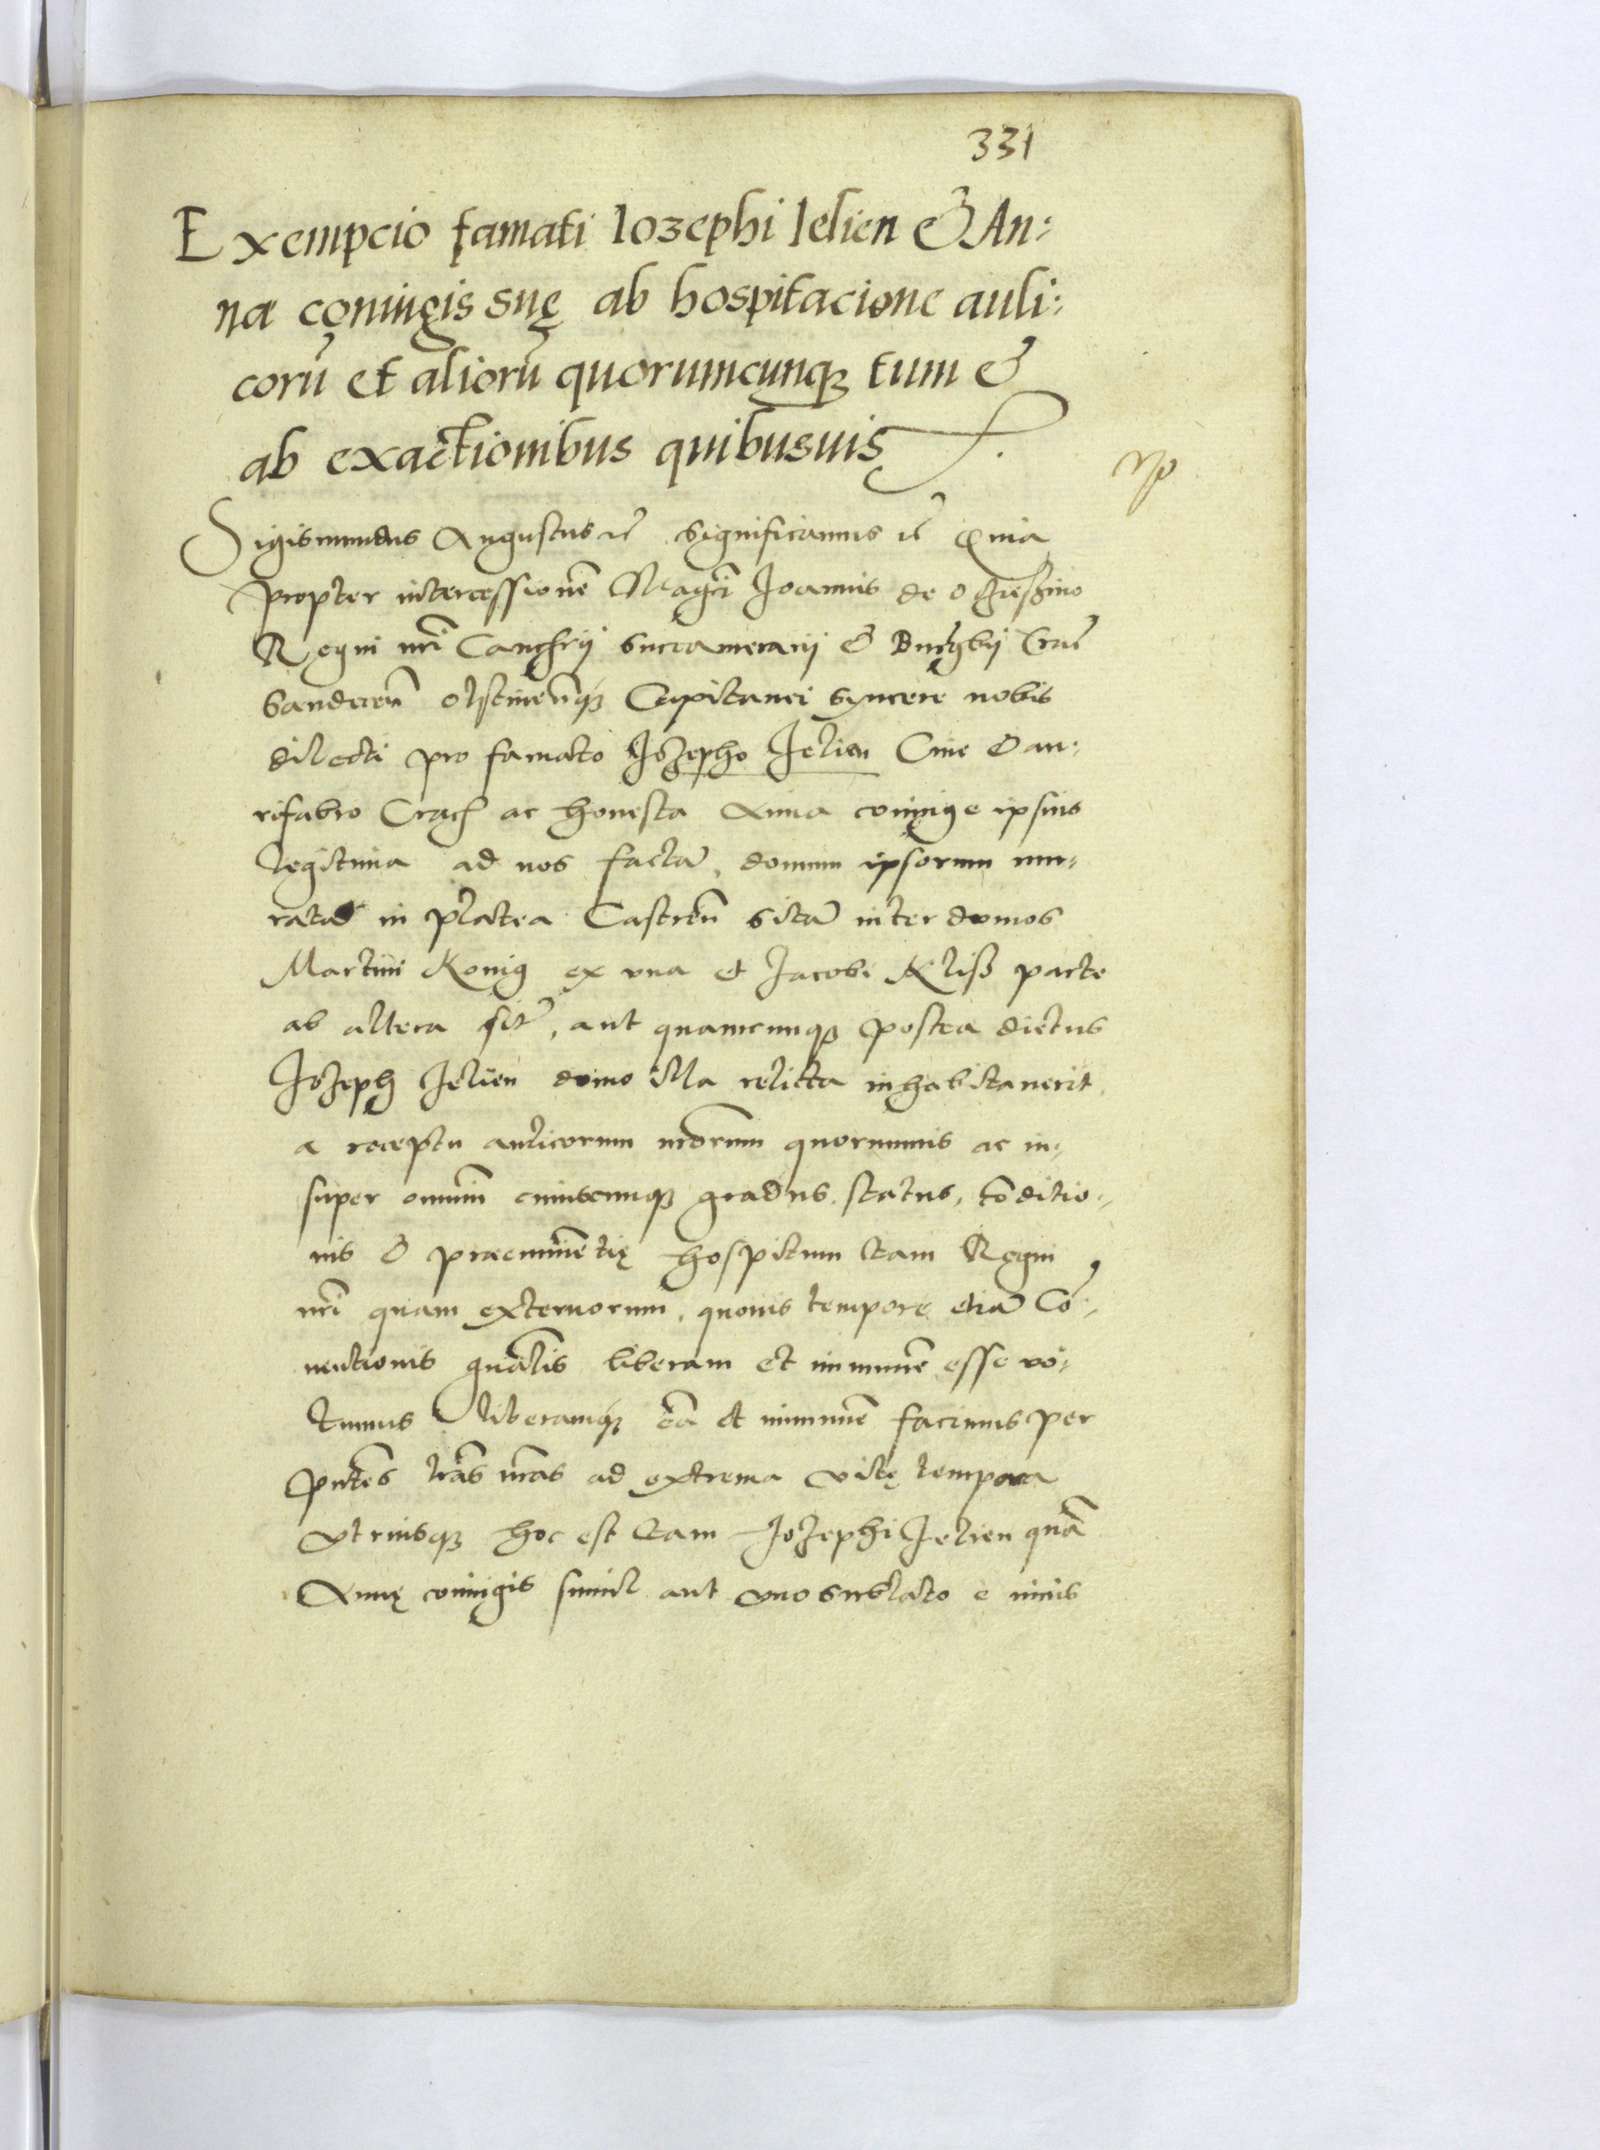 331
Exempcio famati Iozephi Ielien & An:
na coniugis suę ab hospitacione auli:
corū et aliorū quorumcunqȝ tum &
ab exactionibus quibusuis
Sigismundus Augustus significamus Quia
propter intercessionē Magci Joannis de Ocziesszino
Regni nri Succamerarij & Burgbij Crac
Sandecen̄ Olstinen̄qȝ Capitanei syncere nobis
dilecti pro famato Jozepho Jelien Ciue & au:
rifabro Crac ac honesta Anna coniuge ipsius
legitima ad nos factā, domum ipsorum mu:
ratā in platea Castren̄ sitā inter domos
Martini Konig ex vna et Jacobi Kliss parte
ab altera sit, aut quamcunqȝ postea dictus
Jozeph Jelien domo illa relicta inhabitauerit
a receptu aulicorum nrorum quorumuis ac in:
super omniū cuiuscunqȝ gradus, status, cōditio:
nis & praeminētię hospitum tam Regni
nri quam externorum, quouis tempore etiā Cō:
uentionis gnalis liberam et immunē esse vo:
lumus liberamqȝ eā et immunē facimus per
pntes lras nras ad extrema vitę tempora
vtriusqȝ hoc est tam Jozephi Jelien quā
Annę coniugis simul aut vno sublato e viuis